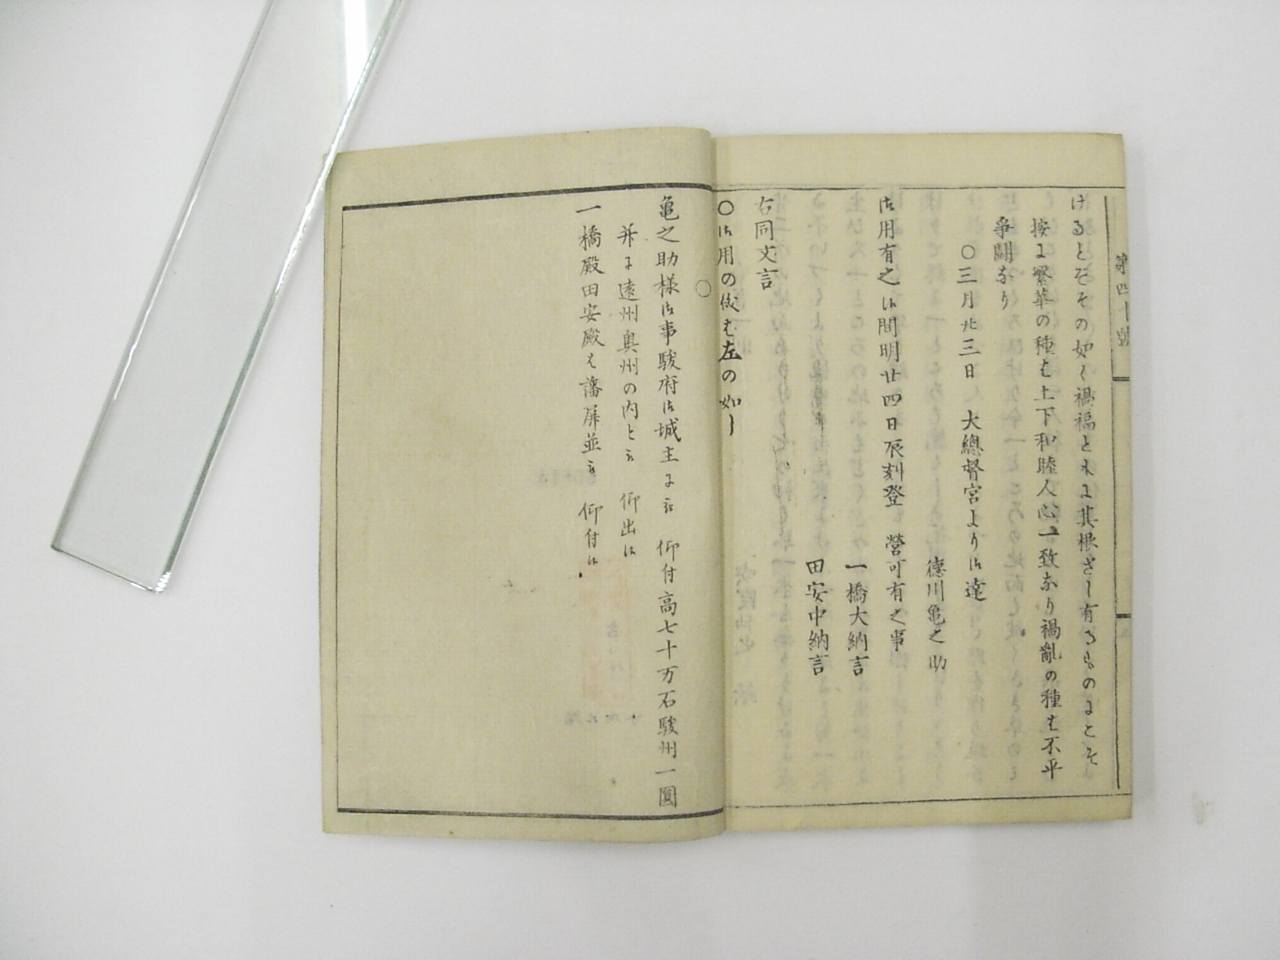 第四十號
けるとぞその如く禍福ともに其根ざし有ものにこそ
按に繁華の種は上下和睦人心一致なり禍亂の種は不平
爭鬪なり
〇三月廿三日　大總督宮より御達
德川亀之助
御用有之御間明廿四日辰刻登　營可有之事
一橋大納言
田安中納言
右同文言
〇御用の儀は左の如し
〇
亀之助樣御事駿府御城主に被　仰付高七十万石駿州一圓
并に遠州奥州の内とも被　仰出候
一橋殿田安殿は藩屏並被　仰付候